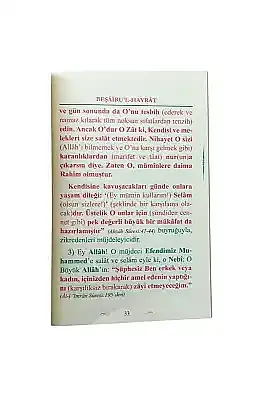 BEŞÂİRU'L-HAYRÂT
ve gün sonunda da O'nu tesbih (ederek ve
namaz kılarak tüm noksan sıfatlardan tenzih)
edin. Ancak O'dur O Zât ki, Kendisi ve me-
lekleri size salât etmektedir. Nihayet O sizi
(Allâh'ı bilmemek ve O'na karşı gelmek gibi)
karanlıklardan (marifet ve tâat) nur(un)a
çıkarsın diye. Zaten O, müminlere daima
Rahîm olmuştur.
Kendisine kavuşacakları günde onlara
yaşam dileği: '(Ey mümin kullarım!) Selâm
(olsun sizlere!)' (şeklinde bir karşılama ola-
cak)dır. Üstelik O onlar için (şimdiden cen-
net gibi) pek değerli büyük bir mükâfat da
hazırlamıştır" (Ahzâb Sûresi:42-44) buyruğuyla,
zikredenleri müjdeleyicidir.
3) Ey Allâh! O müjdeci Efendimiz Mu-
hammed'e salât ve selâm eyle ki, o Nebî; O
Büyük Allâh'ın: "Şüphesiz Ben erkek veya
kadın, içinizden hiçbir amel edenin yaptığı-
nı (karşılıksız bırakarak) zâyi etmeyeceğim."
(Âl-i İmrân Sûresi:195'den)
33